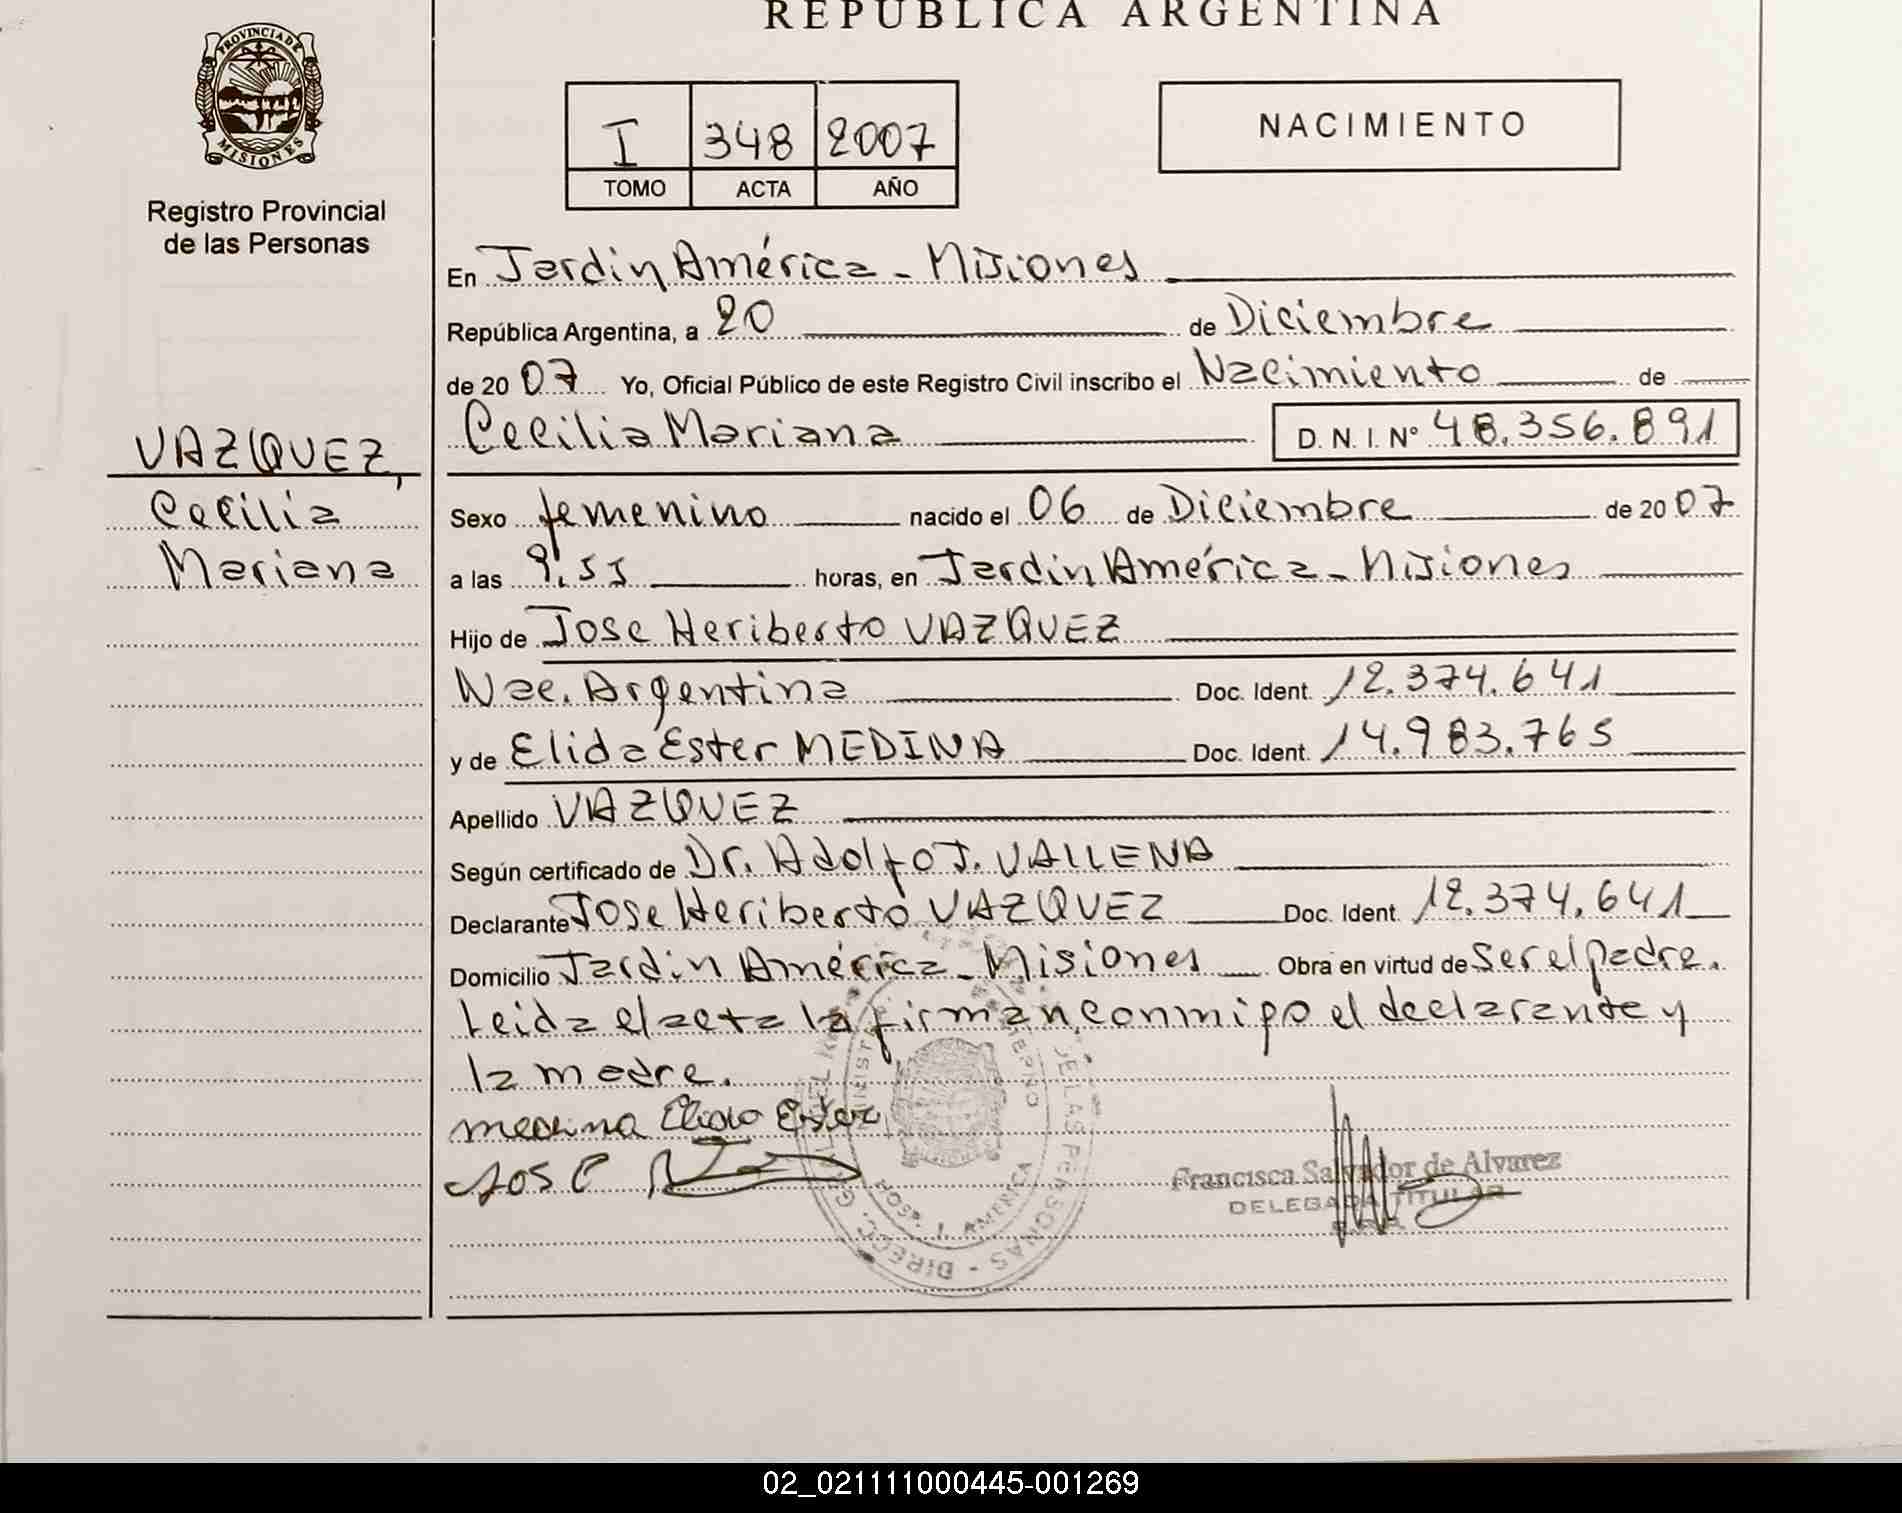 REPUBLICA ARGENTINA
PROVINCIA DE
MISIONES
Registro Provincial
de las Personas
I 348 2007
TOMO ACTA AÑO
NACIMIENTO
En Jardin América - Misiones
República Argentina, a 20 de Diciembre
de 2007 Yo, Oficial Público de este Registro Civil inscribo el Nacimiento de
Cecilia Mariana D. N. I. Nº 48.356.891
VAZQUEZ,
Cecilia
Mariana
Sexo femenino nacido el 06 de Diciembre de 2007
a las 9.55 horas, en Jardin América - Misiones
Hijo de Jose Heriberto VAZQUEZ
Nac. Argentina Doc. Ident. 12.374.641
y de Elida Ester MEDINA Doc. Ident. 14.983.765
Apellido VAZQUEZ
Según certificado de Dr. Adolfo J. VALLENA
Declarante Jose Heriberto VAZQUEZ Doc. Ident. 12.374.641
Domicilio Jardin América - Misiones Obra en virtud de ser el padre.
Leida el acta la firman conmigo el declarante y
la madre.
medina Elida Ester
Jose
Francisca Salvador de Alvarez
DELEGADA TITULAR
DIRECC. GRAL. DEL DE LAS PERSONAS
HOSP. J. AMERICA
02_021111000445-001269